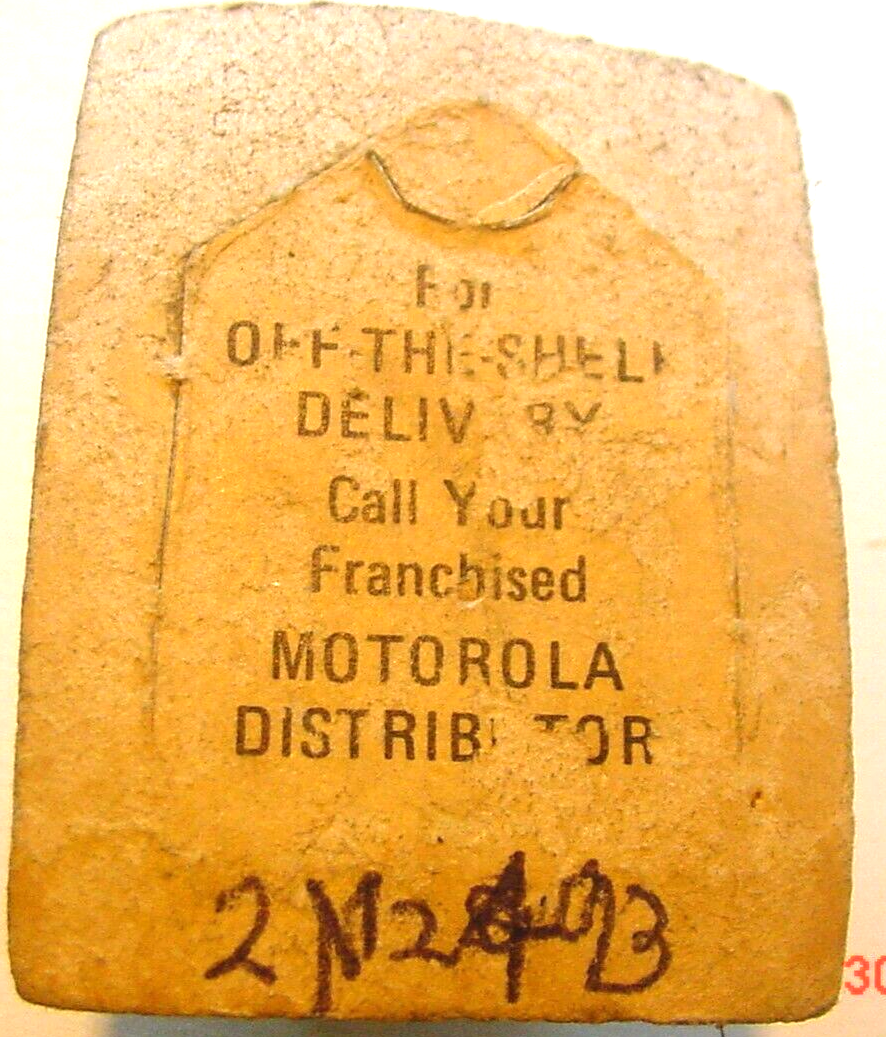 For
OFF-THE-SHELF
DELIVERY
Call Your
Franchised
MOTOROLA
DISTRIBUTOR
30